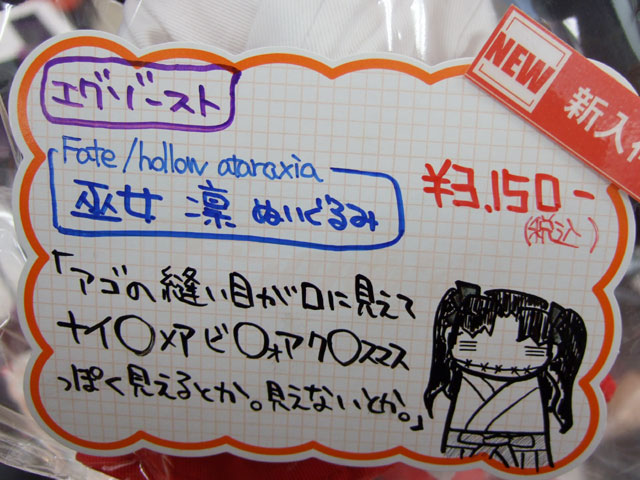 NEW
新入
エグゾースト
Fate/hollow ataraxia
巫女 凛 ぬいぐるみ
¥3,150-
(税込)
「アゴの縫い目が口に見えて
ナイ○メアビ○ォアク○スマス
っぽく見えるとか。見えないとか。」